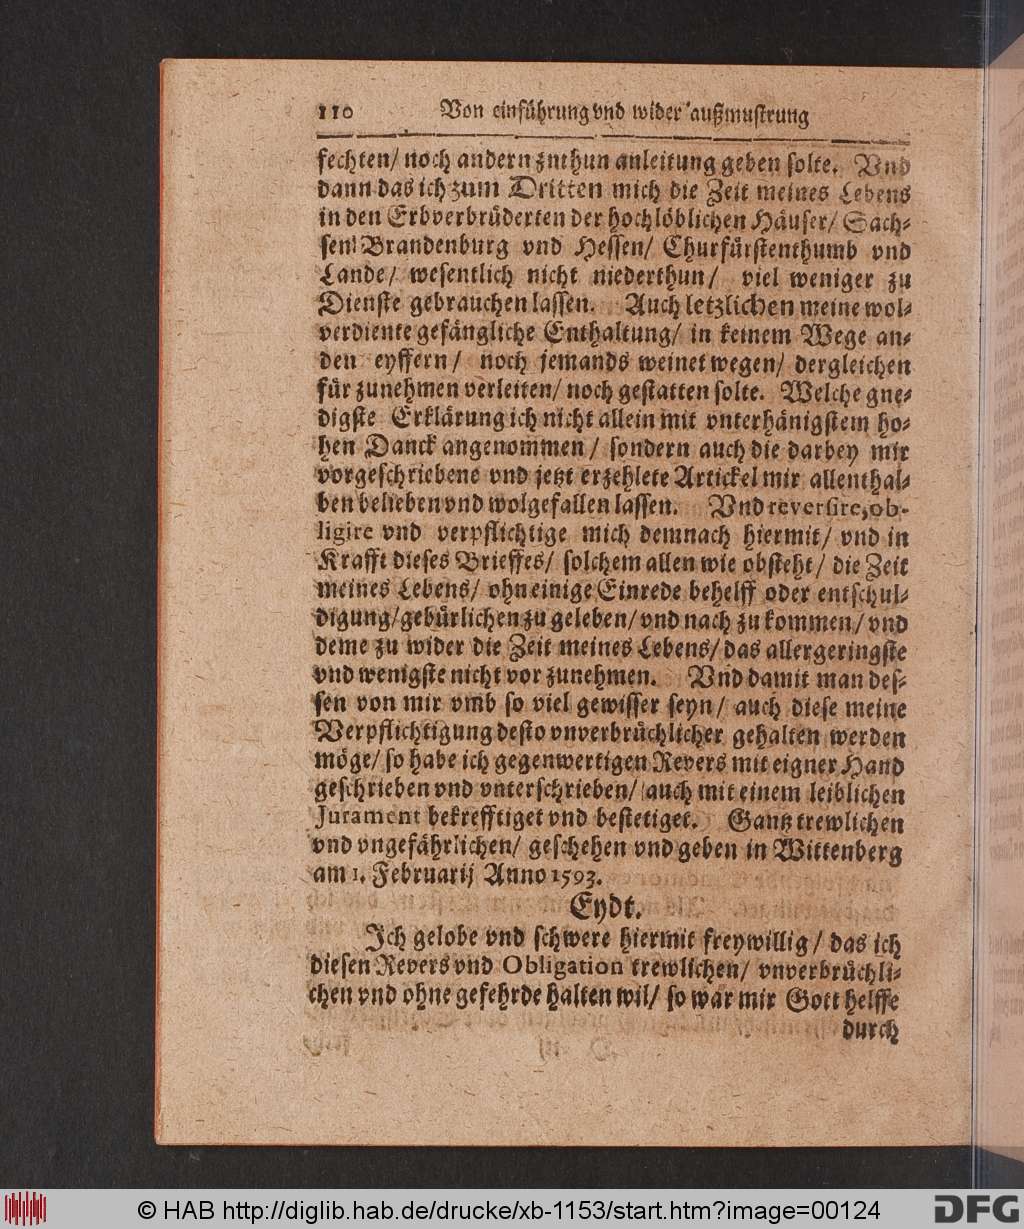 110 Von einführung vnd wider außmustrung
fechten/ noch andern znthun anleitung geben solte. Vnd
dann das ich zum Dritten mich die Zeit meines Lebens
in den Erbverbrüderten der hochlöblichen Häuser/ Sach-
sen/ Brandenburg vnd Hessen/ Churfürstenthumb vnd
Lande/ wesentlich nicht niederthun/ viel weniger zu
Dienste gebrauchen lassen. Auch letzlichen meine wol-
verdiente gefängliche Enthaltung/ in keinem Wege an-
den eyffern/ noch jemands weinet wegen/ dergleichen
für zunehmen verleiten/ noch gestatten solte. Welche gne-
digste Erklärung ich nicht allein mit vnterhänigstem ho-
hen Danck angenommen/ sondern auch die darbey mir
vorgeschriebene vnd jetzt erzehlete Artickel mir allenthal-
ben belieben vnd wolgefallen lassen. Vnd reversire, ob-
ligire vnd verpflichtige mich demnach hiermit/ vnd in
Krafft dieses Brieffes/ solchem allen wie obsteht/ die Zeit
meines Lebens/ ohn einige Einrede behelff oder entschul-
digung/ gebürlichen zu geleben/ vnd nach zu kommen/ vnd
deme zu wider die Zeit meines Lebens/ das allergeringste
vnd wenigste nicht vor zunehmen. Vnd damit man des-
sen von mir vmb so viel gewisser seyn/ auch diese meine
Verpflichtigung desto vnverbrüchlicher gehalten werden
möge/ so habe ich gegenwertigen Revers mit eigner Hand
geschrieben vnd vnterschrieben/ auch mit einem leiblichen
Jurament bekrefftiget vnd bestetiget. Gantz trewlichen
vnd vngefährlichen/ geschehen vnd geben in Wittenberg
am 1. Februarij Anno 1593.
Eydt.
Ich gelobe vnd schwere hiermit freywillig/ das ich
diesen Revers vnd Obligation trewlichen/ vnverbrüchli-
chen vnd ohne gefehrde halten wil/ so war mir Gott helffe
durch
© HAB http://diglib.hab.de/drucke/xb-1153/start.htm?image=00124
DFG